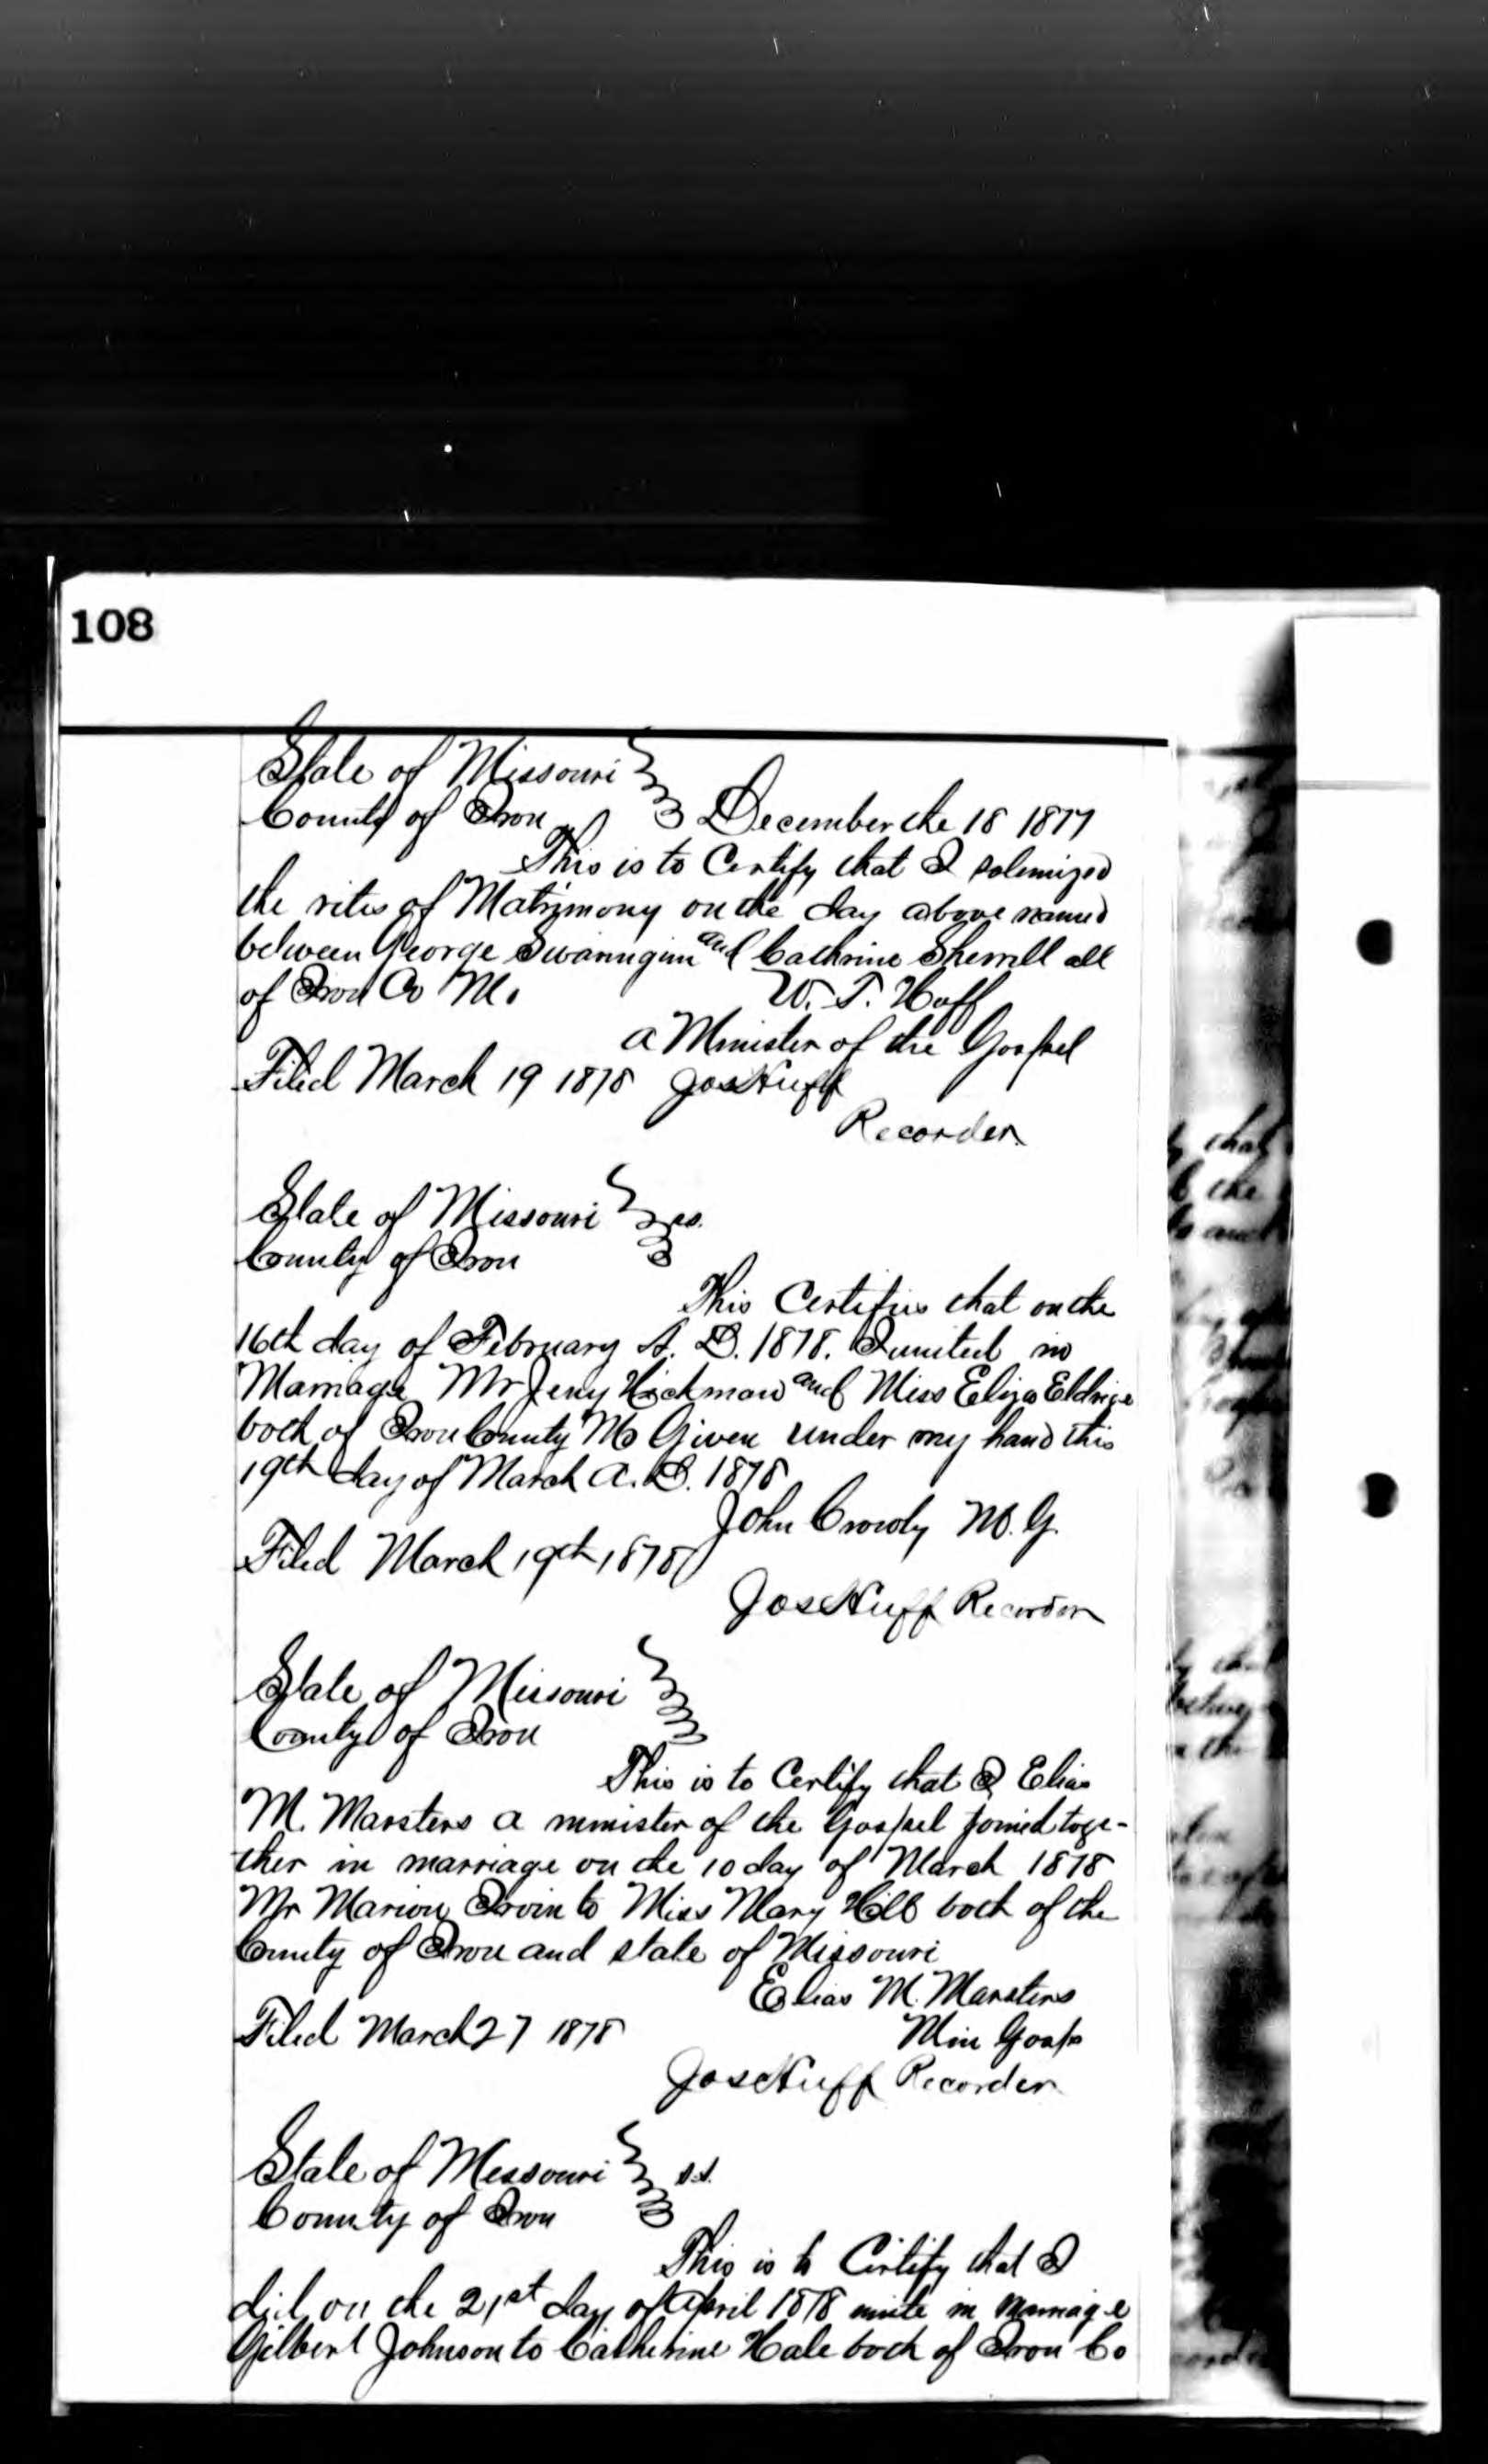 108
State of Missouri
County of Iron December the 18 1877
This is to Certify that I solemized
the rites of Matrimony on the day above named
between George Swanngim and Cathrine Sherrell all
of Iron Co Mo
W. T. Huff
a Minister of the Gospel
Filed March 19 1878 Jos Huff
Recorder
State of Missouri ss.
County of Iron
This Certifies that on the
16th day of February A. D. 1878. I united in
Marriage Mr Jerry Hickman and Miss Eliza Eldrige
both of Iron County Mo Given under my hand this
19th day of March A. D. 1878
John Crowdy M. G.
Filed March 19th 1878
Jos Huff Recorder
State of Missouri
County of Iron
This is to Certify that I Elias
M. Marsters a minister of the Gospel joined toge-
ther in marriage on the 10 day of March 1878
Mr Marion Irvin to Miss Mary Hill both of the
County of Iron and state of Missouri
Elias M. Marsters
Filed March 27 1878 Min Gosp
Jos Huff Recorder
State of Missouri s.s.
County of Iron
This is to Certify that I
did on the 21st day of April 1878 unite in marriage
Gilbert Johnson to Catherine Hale both of Iron Co
that
the
and